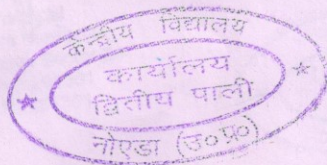 केन्द्रीय विद्यालय
कार्यालय
द्वितीय पाली
नोएडा (उ०प्र०)